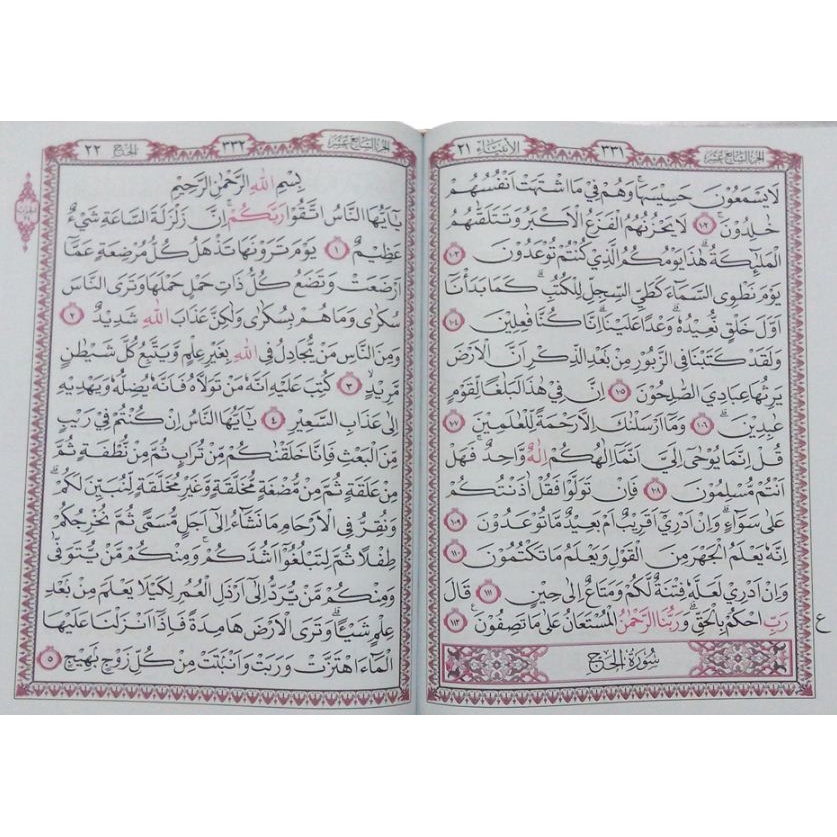 الجزء السابع عشر ٣٣١ الأنبياء ٢١
لَا يَسْمَعُونَ حَسِيسَهَا ۚ وَهُمْ فِي مَا اشْتَهَتْ اَنْفُسُهُمْ
خٰلِدُونَ ۚ ١٠٢ لَا يَحْزُنُهُمُ الْفَزَعُ الْاَكْبَرُ وَتَتَلَقّٰىهُمُ
الْمَلٰٓئِكَةُ ۗ هٰذَا يَوْمُكُمُ الَّذِي كُنْتُمْ تُوعَدُونَ ١٠٣
يَوْمَ نَطْوِى السَّمَاۤءَ كَطَيِّ السِّجِلِّ لِلْكُتُبِ ۗ كَمَا بَدَأْنَآ
اَوَّلَ خَلْقٍ نُّعِيدُهُ ۗ وَعْدًا عَلَيْنَا ۗ اِنَّا كُنَّا فٰعِلِينَ ١٠٤
وَلَقَدْ كَتَبْنَا فِى الزَّبُورِ مِنْ بَعْدِ الذِّكْرِ اَنَّ الْاَرْضَ
يَرِثُهَا عِبَادِيَ الصّٰلِحُونَ ١٠٥ اِنَّ فِي هٰذَا لَبَلٰغًا لِّقَوْمٍ
عٰبِدِينَ ۗ ١٠٦ وَمَآ اَرْسَلْنٰكَ اِلَّا رَحْمَةً لِّلْعٰلَمِينَ ١٠٧
قُلْ اِنَّمَا يُوحٰٓى اِلَيَّ اَنَّمَآ اِلٰهُكُمْ اِلٰهٌ وَّاحِدٌ ۚ فَهَلْ
اَنْتُمْ مُّسْلِمُونَ ١٠٨ فَاِنْ تَوَلَّوْا فَقُلْ اٰذَنْتُكُمْ
عَلٰى سَوَاۤءٍ ۗ وَاِنْ اَدْرِيْٓ اَقَرِيبٌ اَمْ بَعِيدٌ مَّا تُوعَدُونَ ١٠٩
اِنَّهٗ يَعْلَمُ الْجَهْرَ مِنَ الْقَوْلِ وَيَعْلَمُ مَا تَكْتُمُونَ ١١٠
وَاِنْ اَدْرِي لَعَلَّهٗ فِتْنَةٌ لَّكُمْ وَمَتَاعٌ اِلٰى حِينٍ ١١١ قَالَ
رَبِّ احْكُمْ بِالْحَقِّ ۗ وَرَبُّنَا الرَّحْمٰنُ الْمُسْتَعَانُ عَلٰى مَا تَصِفُونَ ࣖ ١١٢
ع
سُورَةُ الْحَجِّ
الجزء السابع عشر ٣٣٢ الحج ٢٢
بِسْمِ اللّٰهِ الرَّحْمٰنِ الرَّحِيمِ
يٰٓاَيُّهَا النَّاسُ اتَّقُوا رَبَّكُمْ ۚ اِنَّ زَلْزَلَةَ السَّاعَةِ شَيْءٌ
عَظِيمٌ ١ يَوْمَ تَرَوْنَهَا تَذْهَلُ كُلُّ مُرْضِعَةٍ عَمَّآ
اَرْضَعَتْ وَتَضَعُ كُلُّ ذَاتِ حَمْلٍ حَمْلَهَا وَتَرَى النَّاسَ
سُكَارٰى وَمَا هُمْ بِسُكَارٰى وَلٰكِنَّ عَذَابَ اللّٰهِ شَدِيدٌ ٢
وَمِنَ النَّاسِ مَنْ يُّجَادِلُ فِي اللّٰهِ بِغَيْرِ عِلْمٍ وَّيَتَّبِعُ كُلَّ شَيْطٰنٍ
مَّرِيدٍ ۙ ٣ كُتِبَ عَلَيْهِ اَنَّهٗ مَنْ تَوَلَّاهُ فَاَنَّهٗ يُضِلُّهٗ وَيَهْدِيهِ
اِلٰى عَذَابِ السَّعِيرِ ٤ يٰٓاَيُّهَا النَّاسُ اِنْ كُنْتُمْ فِي رَيْبٍ
مِّنَ الْبَعْثِ فَاِنَّا خَلَقْنٰكُمْ مِّنْ تُرَابٍ ثُمَّ مِنْ نُّطْفَةٍ ثُمَّ
مِنْ عَلَقَةٍ ثُمَّ مِنْ مُّضْغَةٍ مُّخَلَّقَةٍ وَّغَيْرِ مُخَلَّقَةٍ لِّنُبَيِّنَ لَكُمْ ۗ
وَنُقِرُّ فِى الْاَرْحَامِ مَا نَشَاۤءُ اِلٰٓى اَجَلٍ مُّسَمًّى ثُمَّ نُخْرِجُكُمْ
طِفْلًا ثُمَّ لِتَبْلُغُوْٓا اَشُدَّكُمْ ۚ وَمِنْكُمْ مَّنْ يُّتَوَفّٰى
وَمِنْكُمْ مَّنْ يُّرَدُّ اِلٰٓى اَرْذَلِ الْعُمُرِ لِكَيْلَا يَعْلَمَ مِنْ بَعْدِ
عِلْمٍ شَيْـًٔا ۗ وَتَرَى الْاَرْضَ هَامِدَةً فَاِذَآ اَنْزَلْنَا عَلَيْهَا
الْمَاۤءَ اهْتَزَّتْ وَرَبَتْ وَاَنْبَتَتْ مِنْ كُلِّ زَوْجٍ بَهِيجٍ ٥